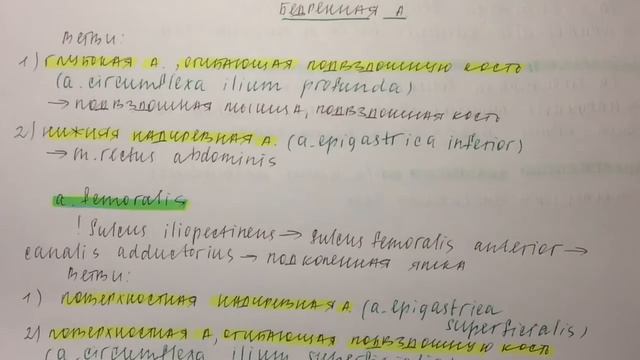 БЕДРЕННАЯ А
ВЕТВИ:
1) ГЛУБОКАЯ А., ОГИБАЮЩАЯ ПОДВЗДОШНУЮ КОСТЬ
(a. circumflexa ilium profunda)
→ ПОДВЗДОШНАЯ МЫШЦА, ПОДВЗДОШНАЯ КОСТЬ
2) НИЖНЯЯ НАДЧРЕВНАЯ А. (a. epigastrica inferior)
→ m. rectus abdominis
a. femoralis
! Sulcus iliopectineus → sulcus femoralis anterior →
canalis adductorius → ПОДКОЛЕННАЯ ЯМКА
ВЕТВИ:
1) ПОВЕРХНОСТНАЯ НАДЧРЕВНАЯ А. (a. epigastrica
superficialis)
2) ПОВЕРХНОСТНАЯ А, ОГИБАЮЩАЯ ПОДВЗДОШНУЮ КОСТЬ
(a. circumflexa ilium superficialis)